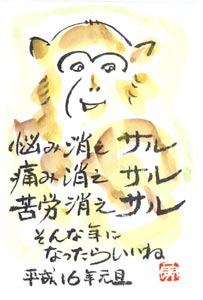 悩み消えサル
痛み消えサル
苦労消えサル
そんな年に
なったらいいね
平成16年元旦